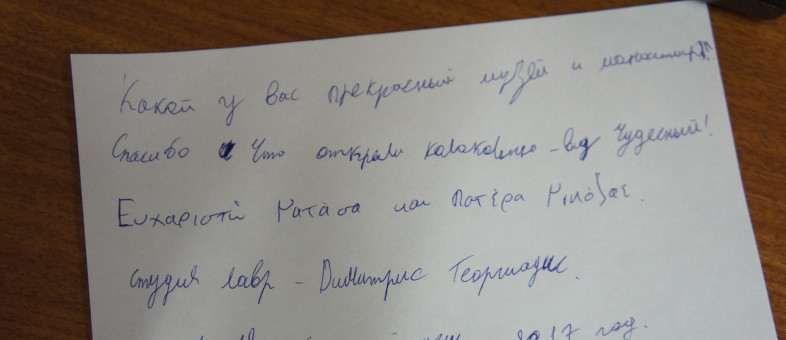 Какой у вас прекрасный музей и монастырь!!
Спасибо что открыли колокольню - вид чудесный!
Ευχαριστώ και Πατέρα
студия лавр - Димитрис Георгиадис.
2017 год.